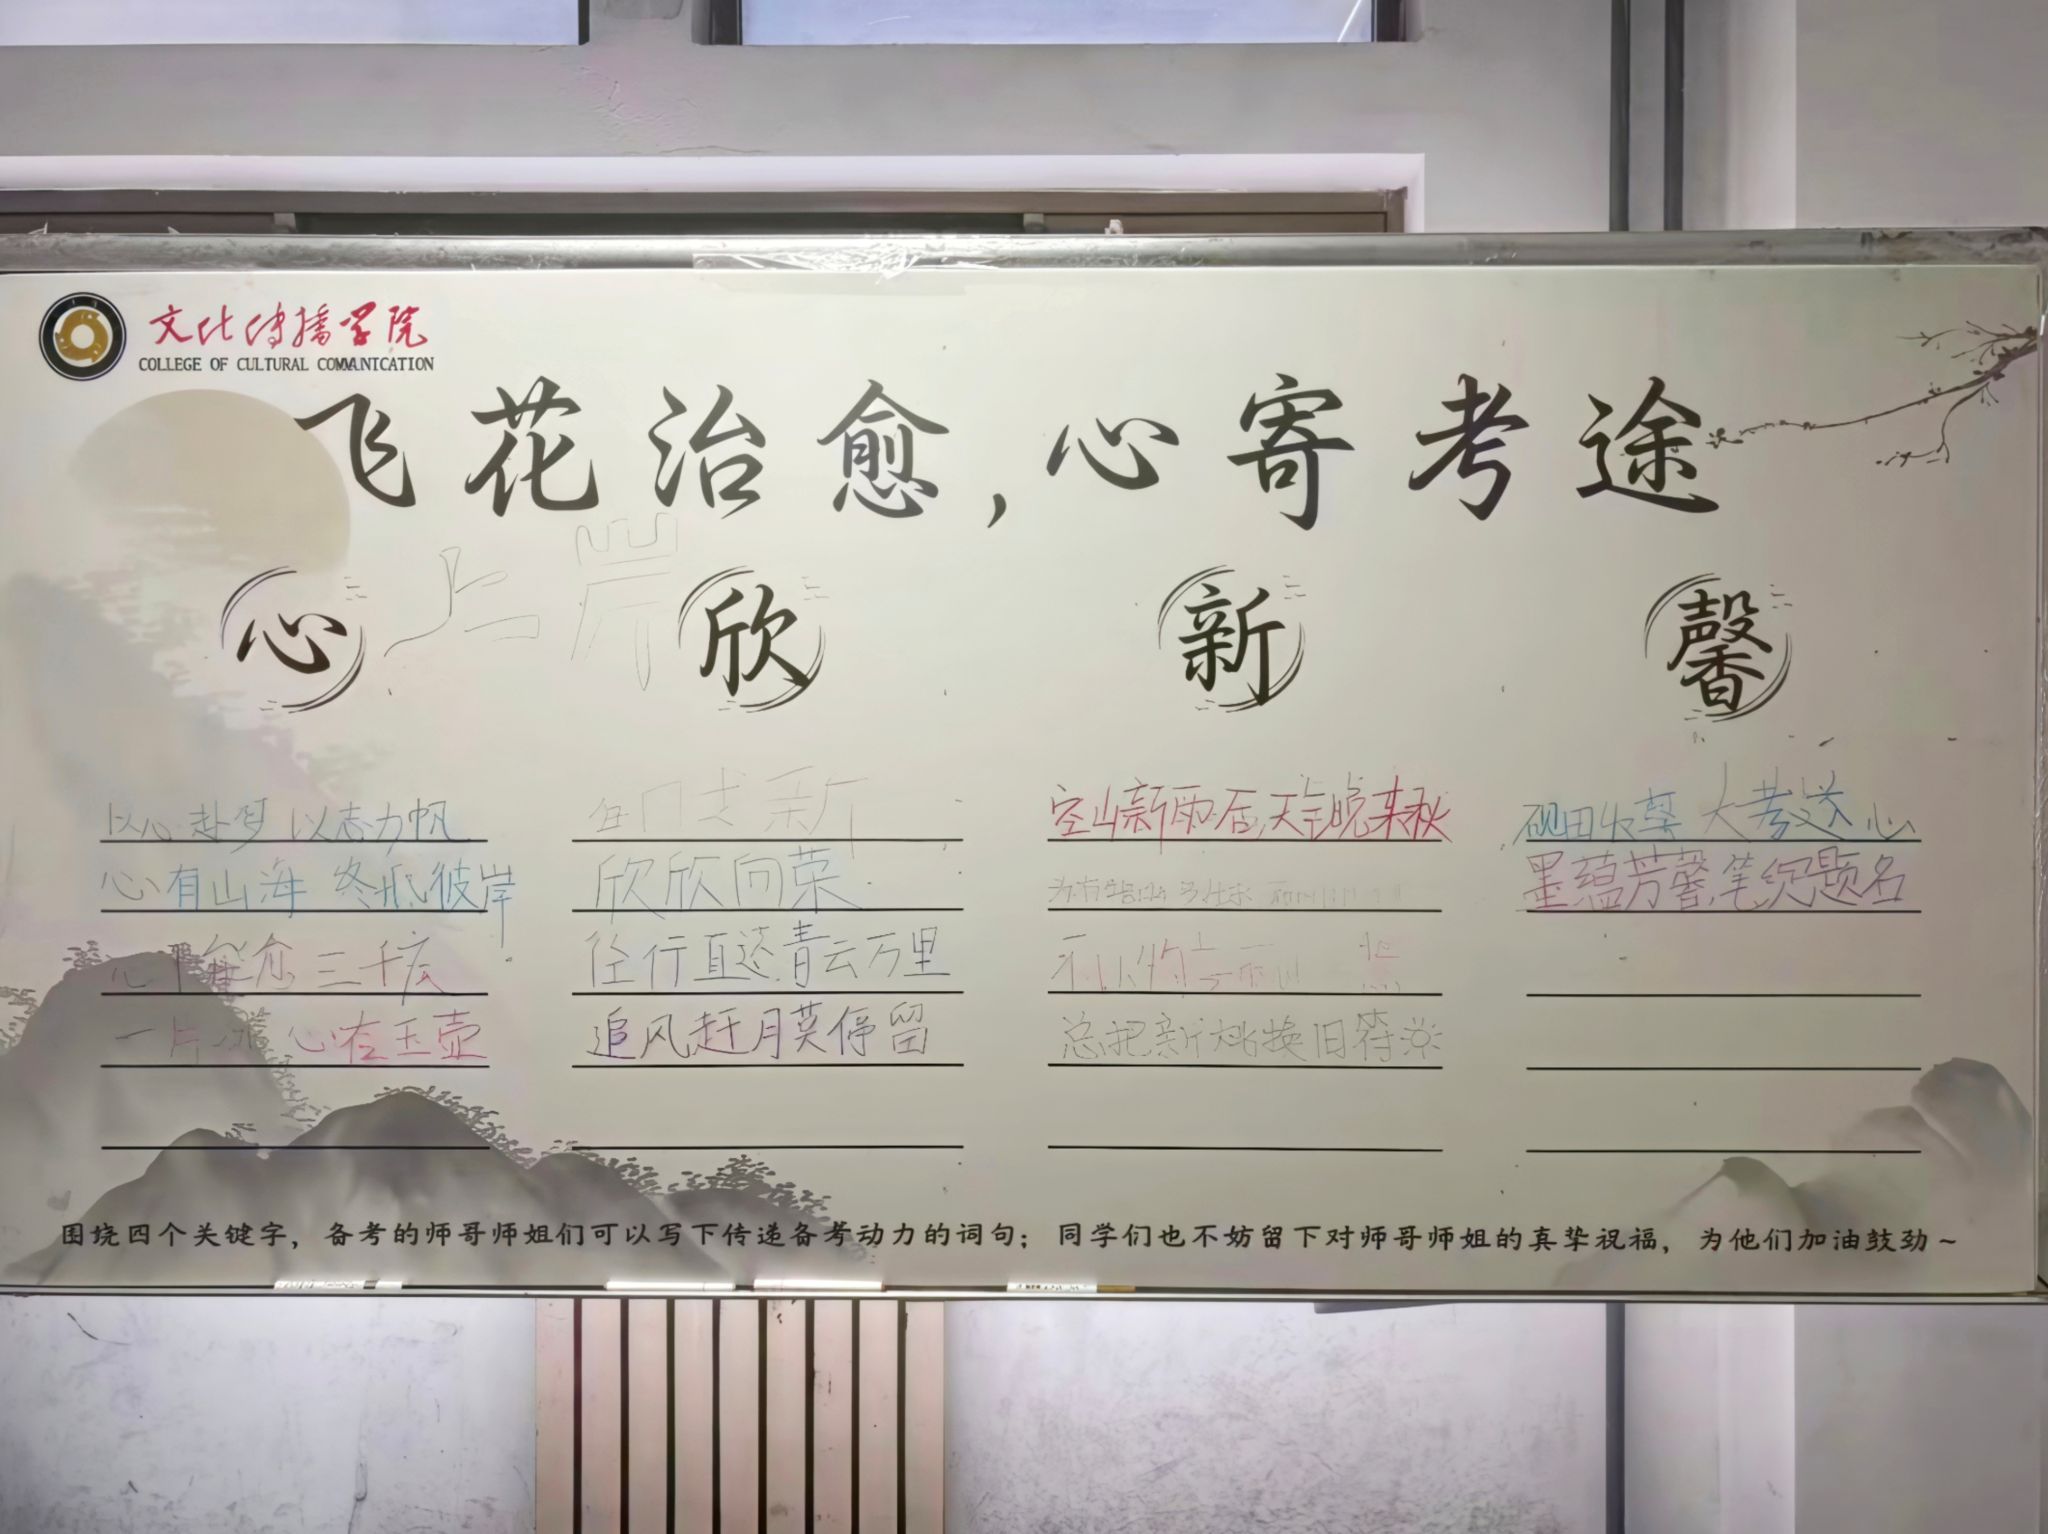 文化传播学院
COLLEGE OF CULTURAL COMMUNICATION
飞花治愈,心寄考途
上岸
心 欣 新 馨
以心赴梦 以志力帆
心有山海 终抵彼岸
三千
一片冰心在玉壶
新
欣欣向荣
径行直遂青云万里
追风赶月莫停留
空山新雨后,天气晚来秋
总把新桃换旧符
砚田 大考 心
墨蕴芳馨,笔织题名
围绕四个关键字，备考的师哥师姐们可以写下传递备考动力的词句；同学们也不妨留下对师哥师姐的真挚祝福，为他们加油鼓劲~